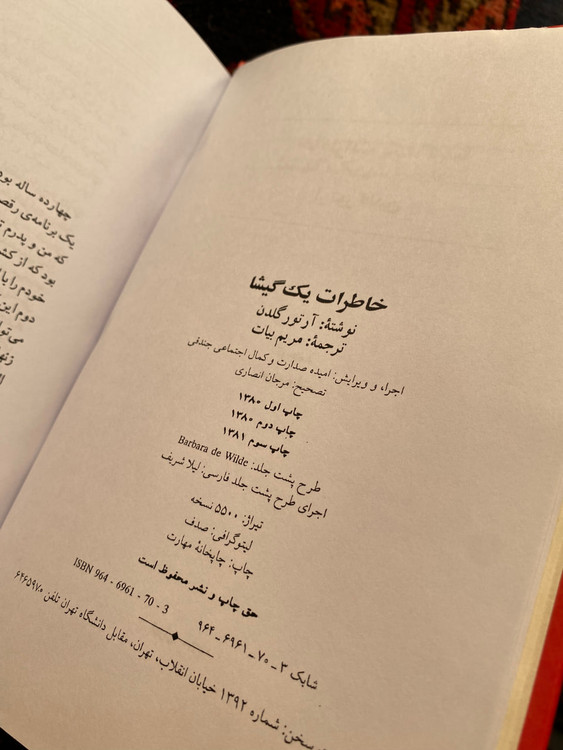 خاطرات یک گیشا
نوشتهٔ: آرتور گلدن
ترجمهٔ: مریم بیات
اجراء و ویرایش: امیده صدارت و کمال اجتماعی جندقی
تصحیح: مرجان انصاری
چاپ اول ۱۳۸۰
چاپ دوم ۱۳۸۰
چاپ سوم ۱۳۸۱
طرح پشت جلد: Barbara de Wilde
اجرای طرح پشت جلد فارسی: لیلا شریف
تیراژ: ۵۵۰۰ نسخه
لیتوگرافی: صدف
چاپ: چاپخانهٔ مهارت
حق چاپ و نشر محفوظ است
ISBN 964 - 6961 - 70 - 3
شابک ۳ ـ ۷۰ ـ ۶۹۶۱ ـ ۹۶۴
سخن: شماره ۱۳۹۲ خیابان انقلاب، تهران، مقابل دانشگاه تهران تلفن ۶۴۶۵۹۷۰
چهارده ساله بود
یک برنامه‌ی رقص
که من و پدرم
بود که از کش
خودم را با
دوم این
می‌توا